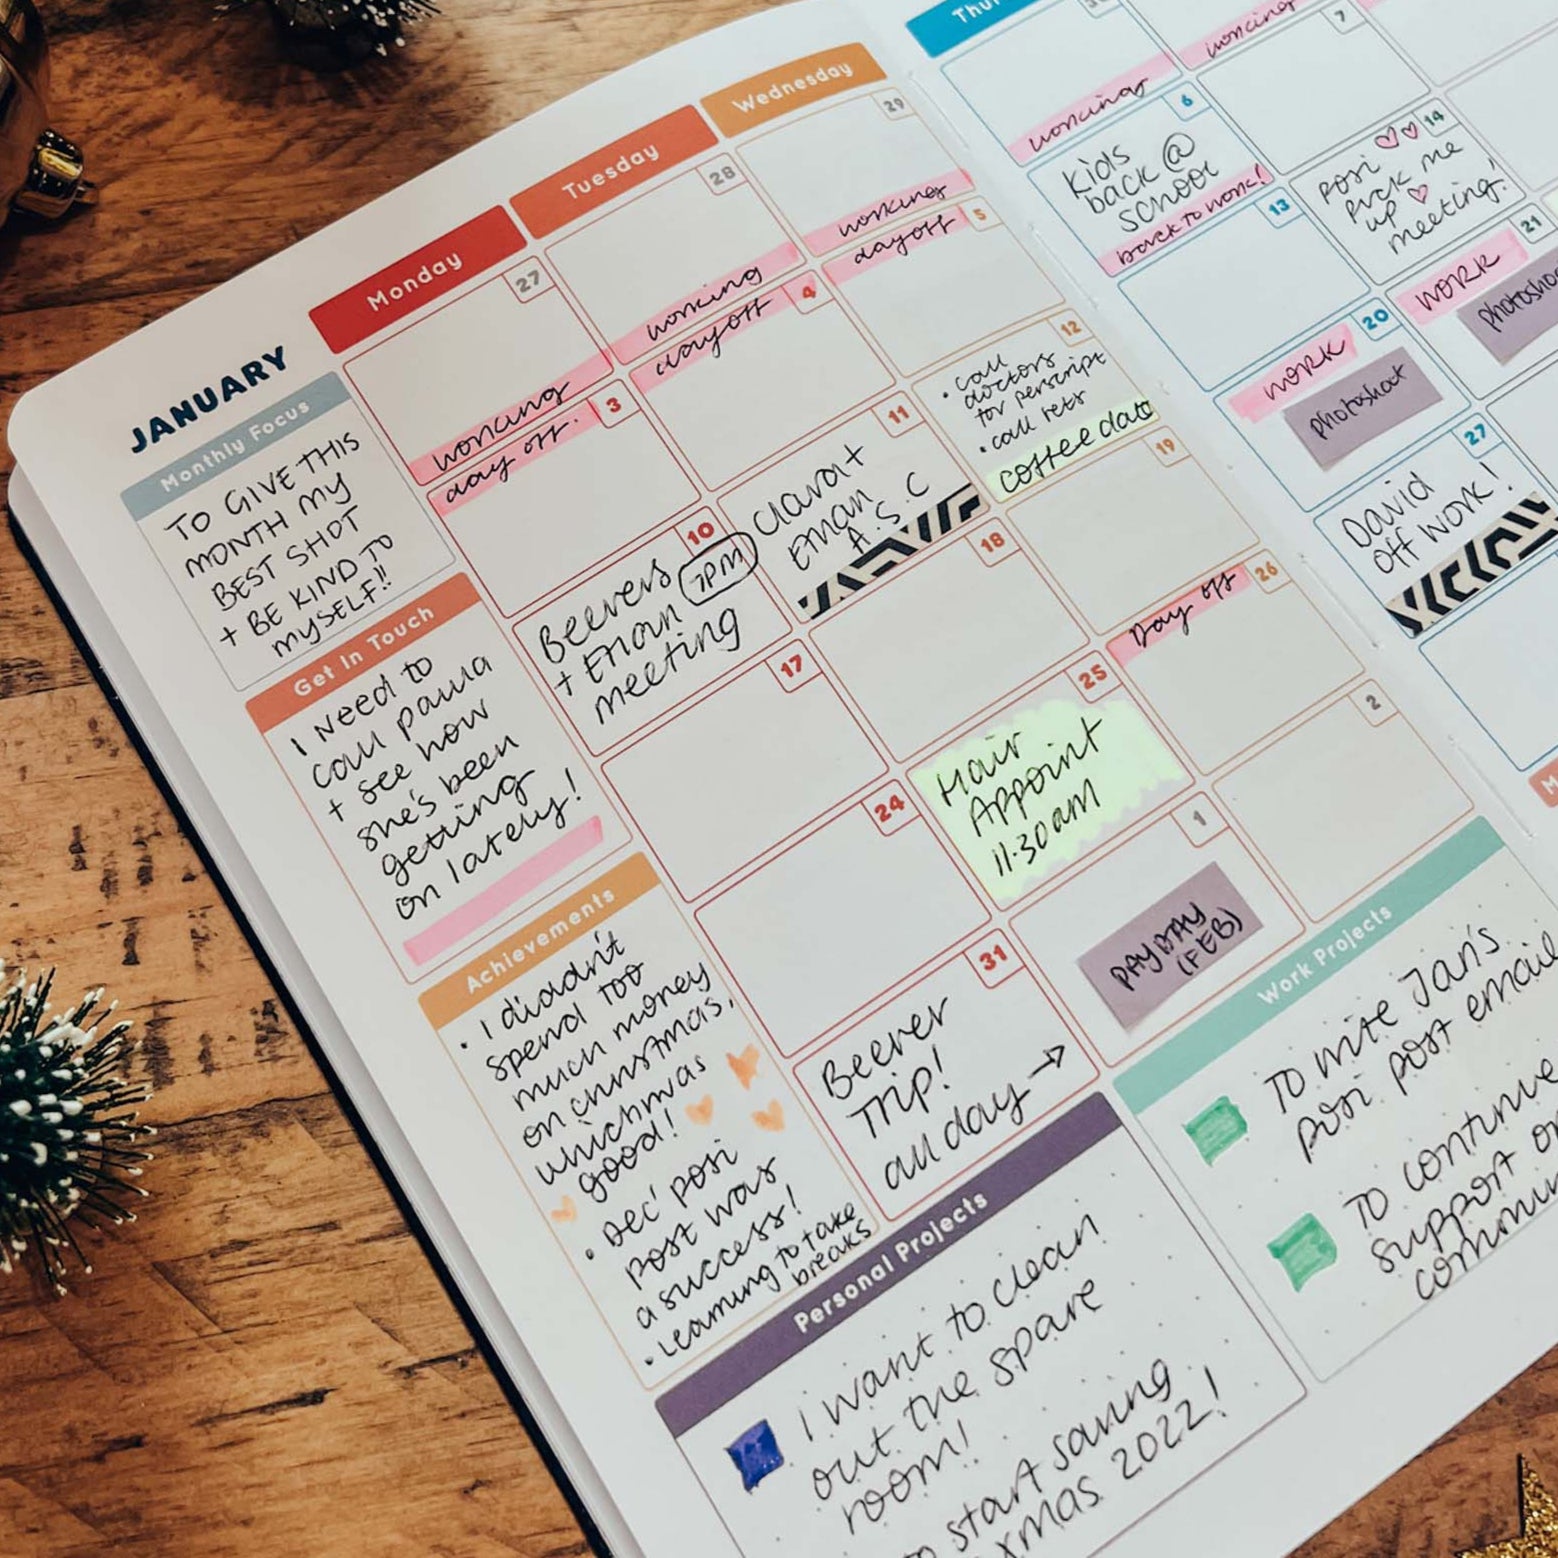 JANUARY
Monthly Focus
TO GIVE THIS
MONTH MY
BEST SHOT
+ BE KIND TO
MYSELF!!
Get In Touch
I NEED to
call paula
+ see how
she's been
getting
on lately!
Achievements
• I diadn't
spend too
much money
on christmas,
which was
good!
• Dec' posi
post was
a success!
• Learning to take
breaks
Monday
Tuesday
Wednesday
Thur
27
working
28
working
29
working
30
working
working
3
day off.
4
day off
5
day off
6
Kids
back @
school
back to work!
7
10
Beevers 7PM
+ Eman
meeting
11
Clara +
Eman
A.S.C
12
• call
doctors
for perscript
• call vets
coffee date
13
14
posi
pick me
up
meeting!
17
18
19
20
WORK
photoshoot
21
WORK
photosho
24
25
Hair
Appoint
11.30am
26
Day off
27
David
off work!
31
Beever
Trip!
all day →
1
PAYDAY
(FEB)
2
M
Personal Projects
I want to clean
out the spare
room!
start saving
xmas 2022!
Work Projects
TO write Jan's
posi post email
TO continue
support